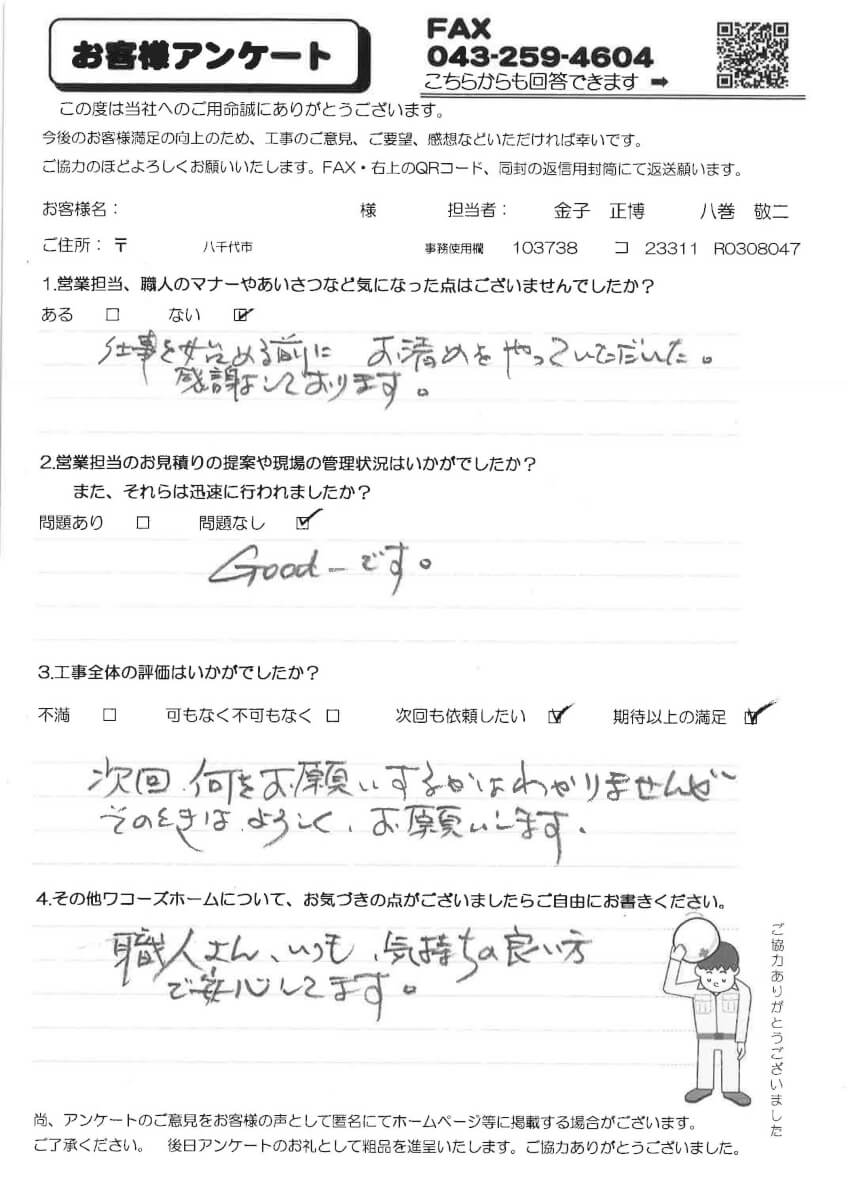 お客様アンケート
FAX
043-259-4604
こちらからも回答できます ➡
この度は当社へのご用命誠にありがとうございます。
今後のお客様満足の向上のため、工事のご意見、ご要望、感想などいただければ幸いです。
ご協力のほどよろしくお願いいたします。FAX・右上のQRコード、同封の返信用封筒にて返送願います。
お客様名： 様 担当者： 金子 正博 八巻 敬二
ご住所：〒 八千代市 事務使用欄 103738 コ 23311 R0308047
1.営業担当、職人のマナーやあいさつなど気になった点はございませんでしたか？
ある □ ない ☑
仕事を始める前に お清めをやっていただいた。
感謝しております。
2.営業担当のお見積りの提案や現場の管理状況はいかがでしたか？
また、それらは迅速に行われましたか？
問題あり □ 問題なし ☑
Goodーです。
3.工事全体の評価はいかがでしたか？
不満 □ 可もなく不可もなく □ 次回も依頼したい ☑ 期待以上の満足 ☑
次回、何をお願いするかはわかりませんが
そのときは、よろしく、お願いします。
4.その他ワコーズホームについて、お気づきの点がございましたらご自由にお書きください。
職人さん、いつも、気持ちの良い方
で安心してます。
ご協力ありがとうございました
尚、アンケートのご意見をお客様の声として匿名にてホームページ等に掲載する場合がございます。
ご了承ください。 後日アンケートのお礼として粗品を進呈いたします。ご協力ありがとうございました。